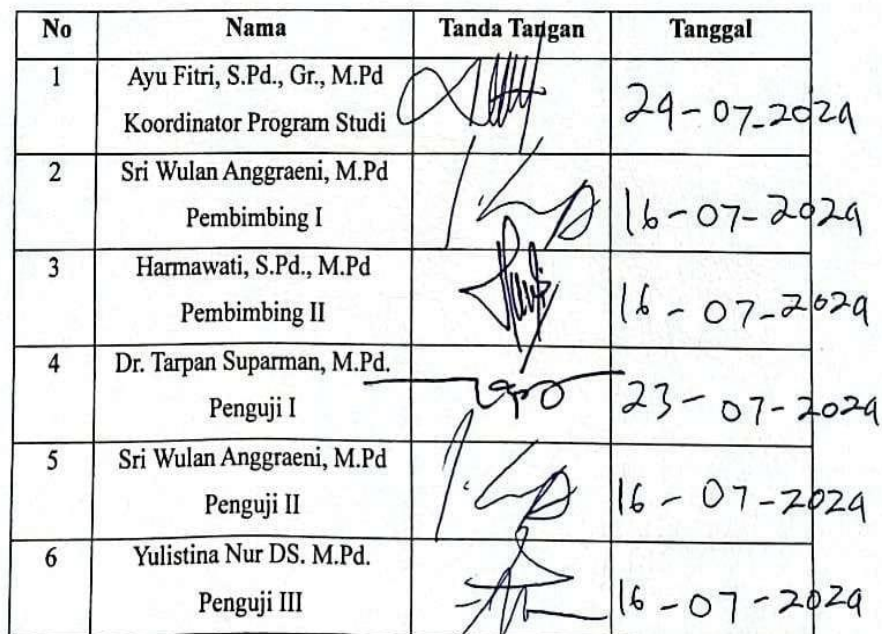 No Nama Tanda Tangan Tanggal
1 Ayu Fitri, S.Pd., Gr., M.Pd
Koordinator Program Studi 24-07-2024
2 Sri Wulan Anggraeni, M.Pd
Pembimbing I 16-07-2024
3 Harmawati, S.Pd., M.Pd
Pembimbing II 16-07-2024
4 Dr. Tarpan Suparman, M.Pd.
Penguji I 23-07-2024
5 Sri Wulan Anggraeni, M.Pd
Penguji II 16-07-2024
6 Yulistina Nur DS. M.Pd.
Penguji III 16-07-2024